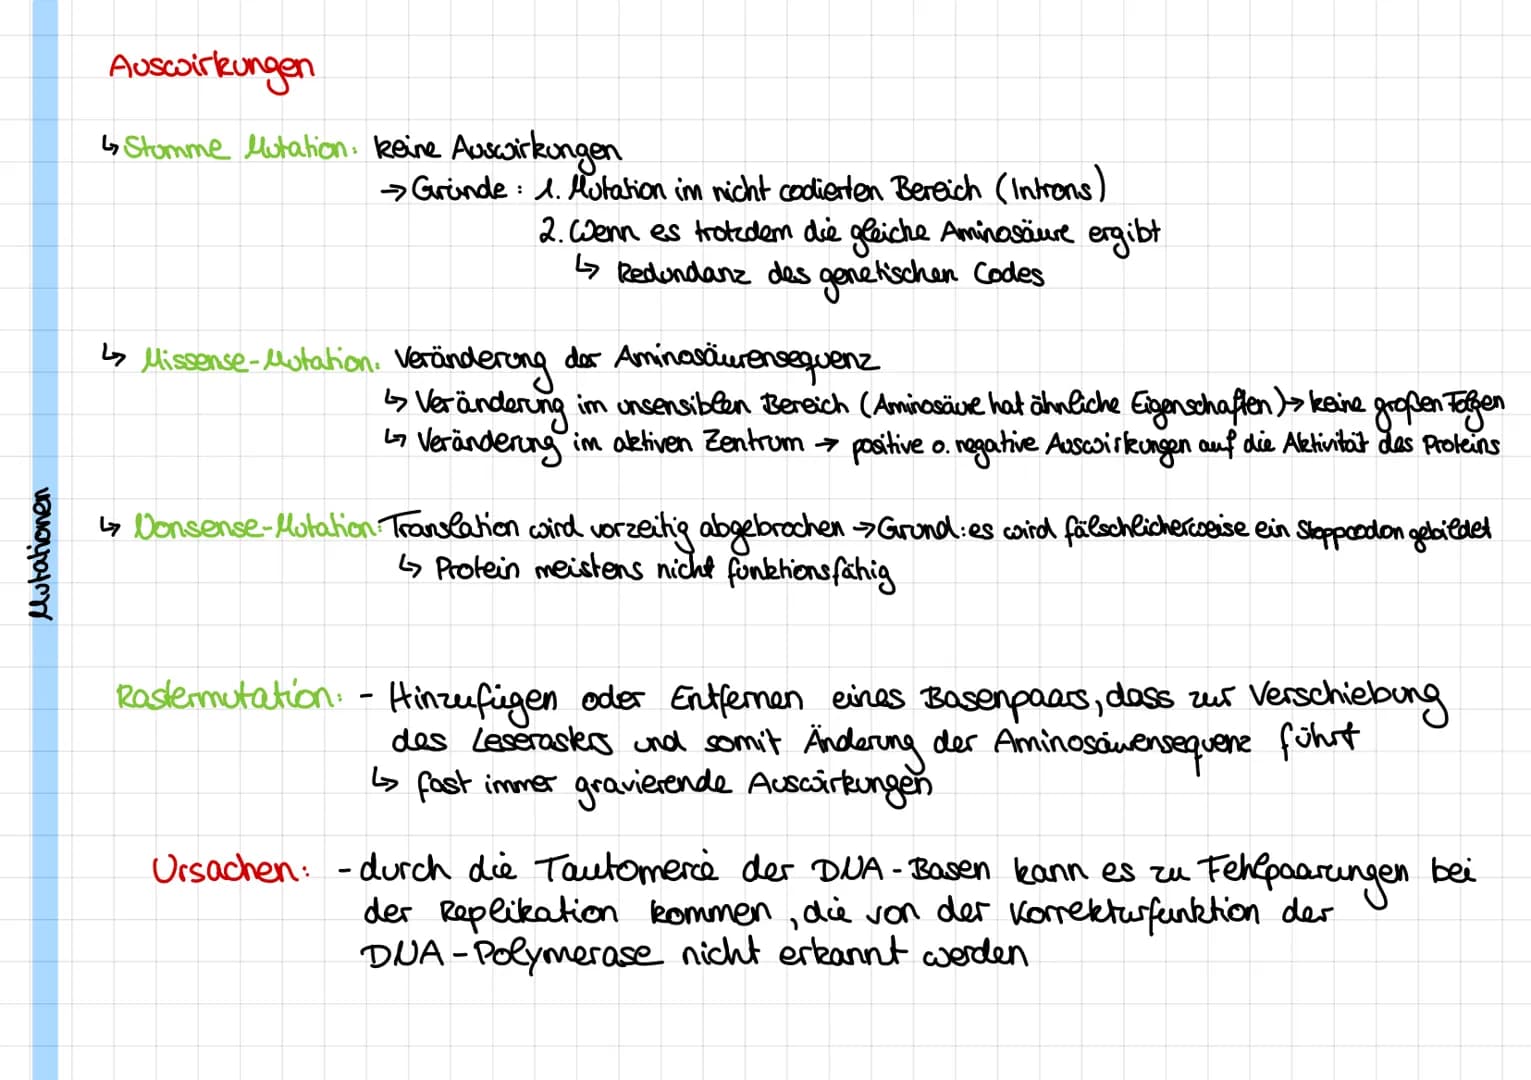 Auswirkungen
↳ Stumme Mutation: keine Auswirkungen
→ Gründe: 1. Mutation im nicht codierten Bereich (Introns)
2. Wenn es trotzdem die gleiche Aminosäure ergibt
↳ Redundanz des genetischen Codes
↳ Missense-Mutation: Veränderung der Aminosäurensequenz
↳ Veränderung im unsensiblen Bereich (Aminosäure hat ähnliche Eigenschaften) → keine großen Folgen
↳ Veränderung im aktiven Zentrum → positive o. negative Auswirkungen auf die Aktivität des Proteins
↳ Nonsense-Mutation: Translation wird vorzeitig abgebrochen → Grund: es wird fälschlicherweise ein Stoppcodon gebildet
↳ Protein meistens nicht funktionsfähig
Mutationen
Rastermutation: - Hinzufügen oder Entfernen eines Basenpaars, dass zur Verschiebung
des Leserasters und somit Änderung der Aminosäurensequenz führt
↳ fast immer gravierende Auswirkungen
Ursachen: - durch die Tautomerie der DNA-Basen kann es zu Fehlpaarungen bei
der Replikation kommen, die von der Korrekturfunktion der
DNA-Polymerase nicht erkannt werden